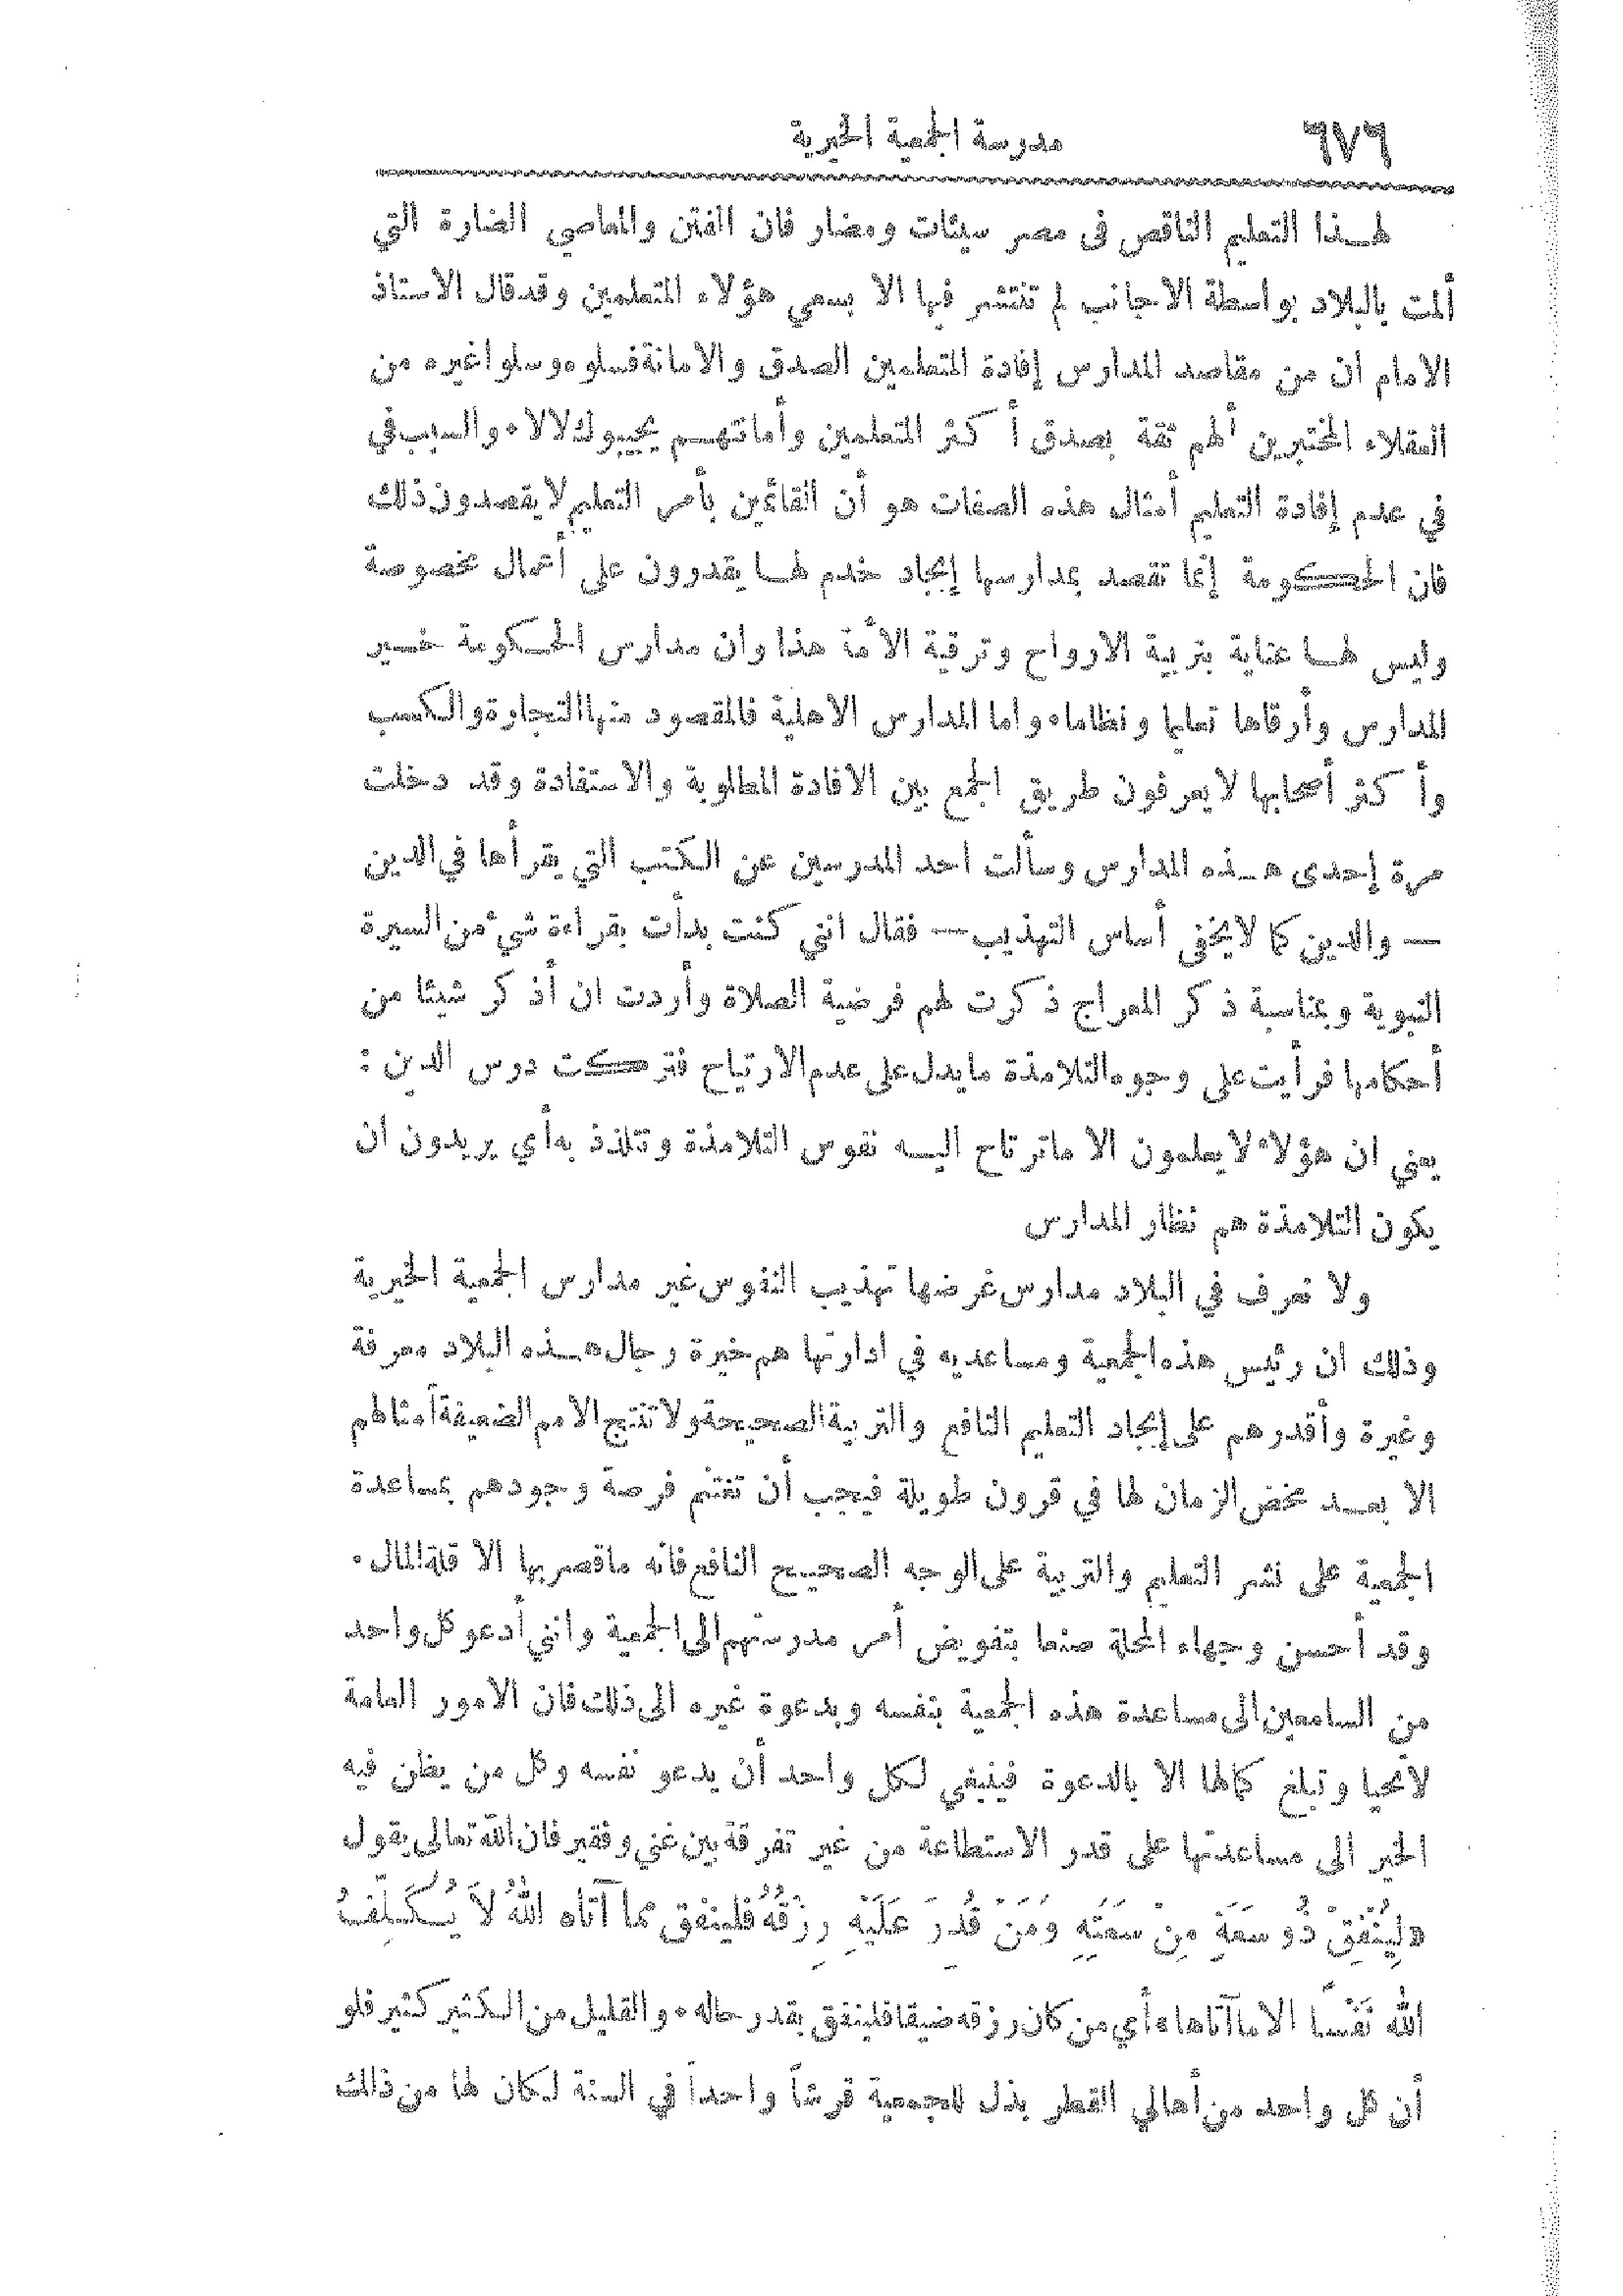 ٦٧٦ مدرسة الجمعية الخيرية
لهـذا التعليم الناقص فى مصر سيئات ومضار فان الفتن والمعاصي الضارة التي
ألمت بالبلاد بواسطة الاجانب لم تنتشر فيها الا بسعي هؤلاء المتعلمين وقد قال الاستاذ
الامام ان من مقاصد المدارس إفادة المتعلمين الصدق والامانة فسلوه وسلوا غيره من
العقلاء المختبرين ألهم ثقة بصدق أكثر المتعلمين وأماناتهـم يجيبوك لا لا ٠ والسبب في
في عدم إفادة التعليم أمثال هذه الصفات هو أن القائمين بأمر التعليم لا يقصدون ذلك
فان الحكومة إنما تقصد بمدارسها إيجاد خدم لهـا يقدرون على أعمال مخصوصة
وليس لهـا عناية بتربية الارواح وترقية الأمة هذا وان مدارس الحكومة خـير
المدارس وأرقاها تعليما ونظاما ٠ واما المدارس الاهلية فالمقصود منها التجارة والكسب
وأكثر أصحابها لا يعرفون طريق الجمع بين الافادة المطلوبة والاستفادة وقد دخلت
مرة إحدى هـذه المدارس وسألت احد المدرسين عن الكتب التي يقرأها في الدين
— والدين كما لا يخفى أساس التهذيب — فقال انني كنت بدأت بقراءة شيء من السيرة
النبوية وبمناسبة ذكر المعراج ذكرت لهم فرضية الصلاة وأردت ان أذكر شيئا من
أحكامها فرأيت على وجوه التلامذة ما يدل على عدم الارتياح فتركت درس الدين :
يعني ان هؤلاء لا يعلمون الا ما ترتاح اليـه نفوس التلامذة وتتلذذ به أي يريدون ان
يكون التلامذة هم نظار المدارس
ولا نعرف في البلاد مدارس غرضها تهذيب النفوس غير مدارس الجمعية الخيرية
وذلك ان رئيس هذه الجمعية ومساعديه في ادارتها هم خيرة رجال هـذه البلاد معرفة
وغيرة وأقدرهم على إيجاد التعليم النافع والتربية الصحيحة ولا تنتج الامم الضعيفة أمثالهم
الا بعـد مخض الزمان لها في قرون طويلة فيجب أن تغتنم فرصة وجودهم بمساعدة
الجمعية على نشر التعليم والتربية على الوجه الصحيح النافع فانه ما قصر بها الا قلة المال ٠
وقد أحسن وجهاء المحلة صنعا بتفويض أمر مدرستهم الى الجمعية وانني أدعو كل واحد
من السامعين الى مساعدة هذه الجمعية بنفسه وبدعوة غيره الى ذلك فان الامور العامة
لا تحيا وتبلغ كمالها الا بالدعوة فينبغي لكل واحد أن يدعو نفسه وكل من يظن فيه
الخير الى مساعدتها على قدر الاستطاعة من غير تفرقة بين غني وفقير فان الله تعالى يقول
« لِيُنْفِقْ ذُو سَعَةٍ مِنْ سَعَتِهِ وَمَنْ قُدِرَ عَلَيْهِ رِزْقُهُ فلينفق مما آتاه اللهُ لاَ يُكَلِّفُ
الله نَفْسًا الا ما آتاها » أي من كان رزقه ضيقا فلينفق بقدر حاله ٠ والقليل من الكثير كثير فلو
أن كل واحد من أهالي القطر بذل للجمعية قرشاً واحداً في السنة لكان لها من ذلك